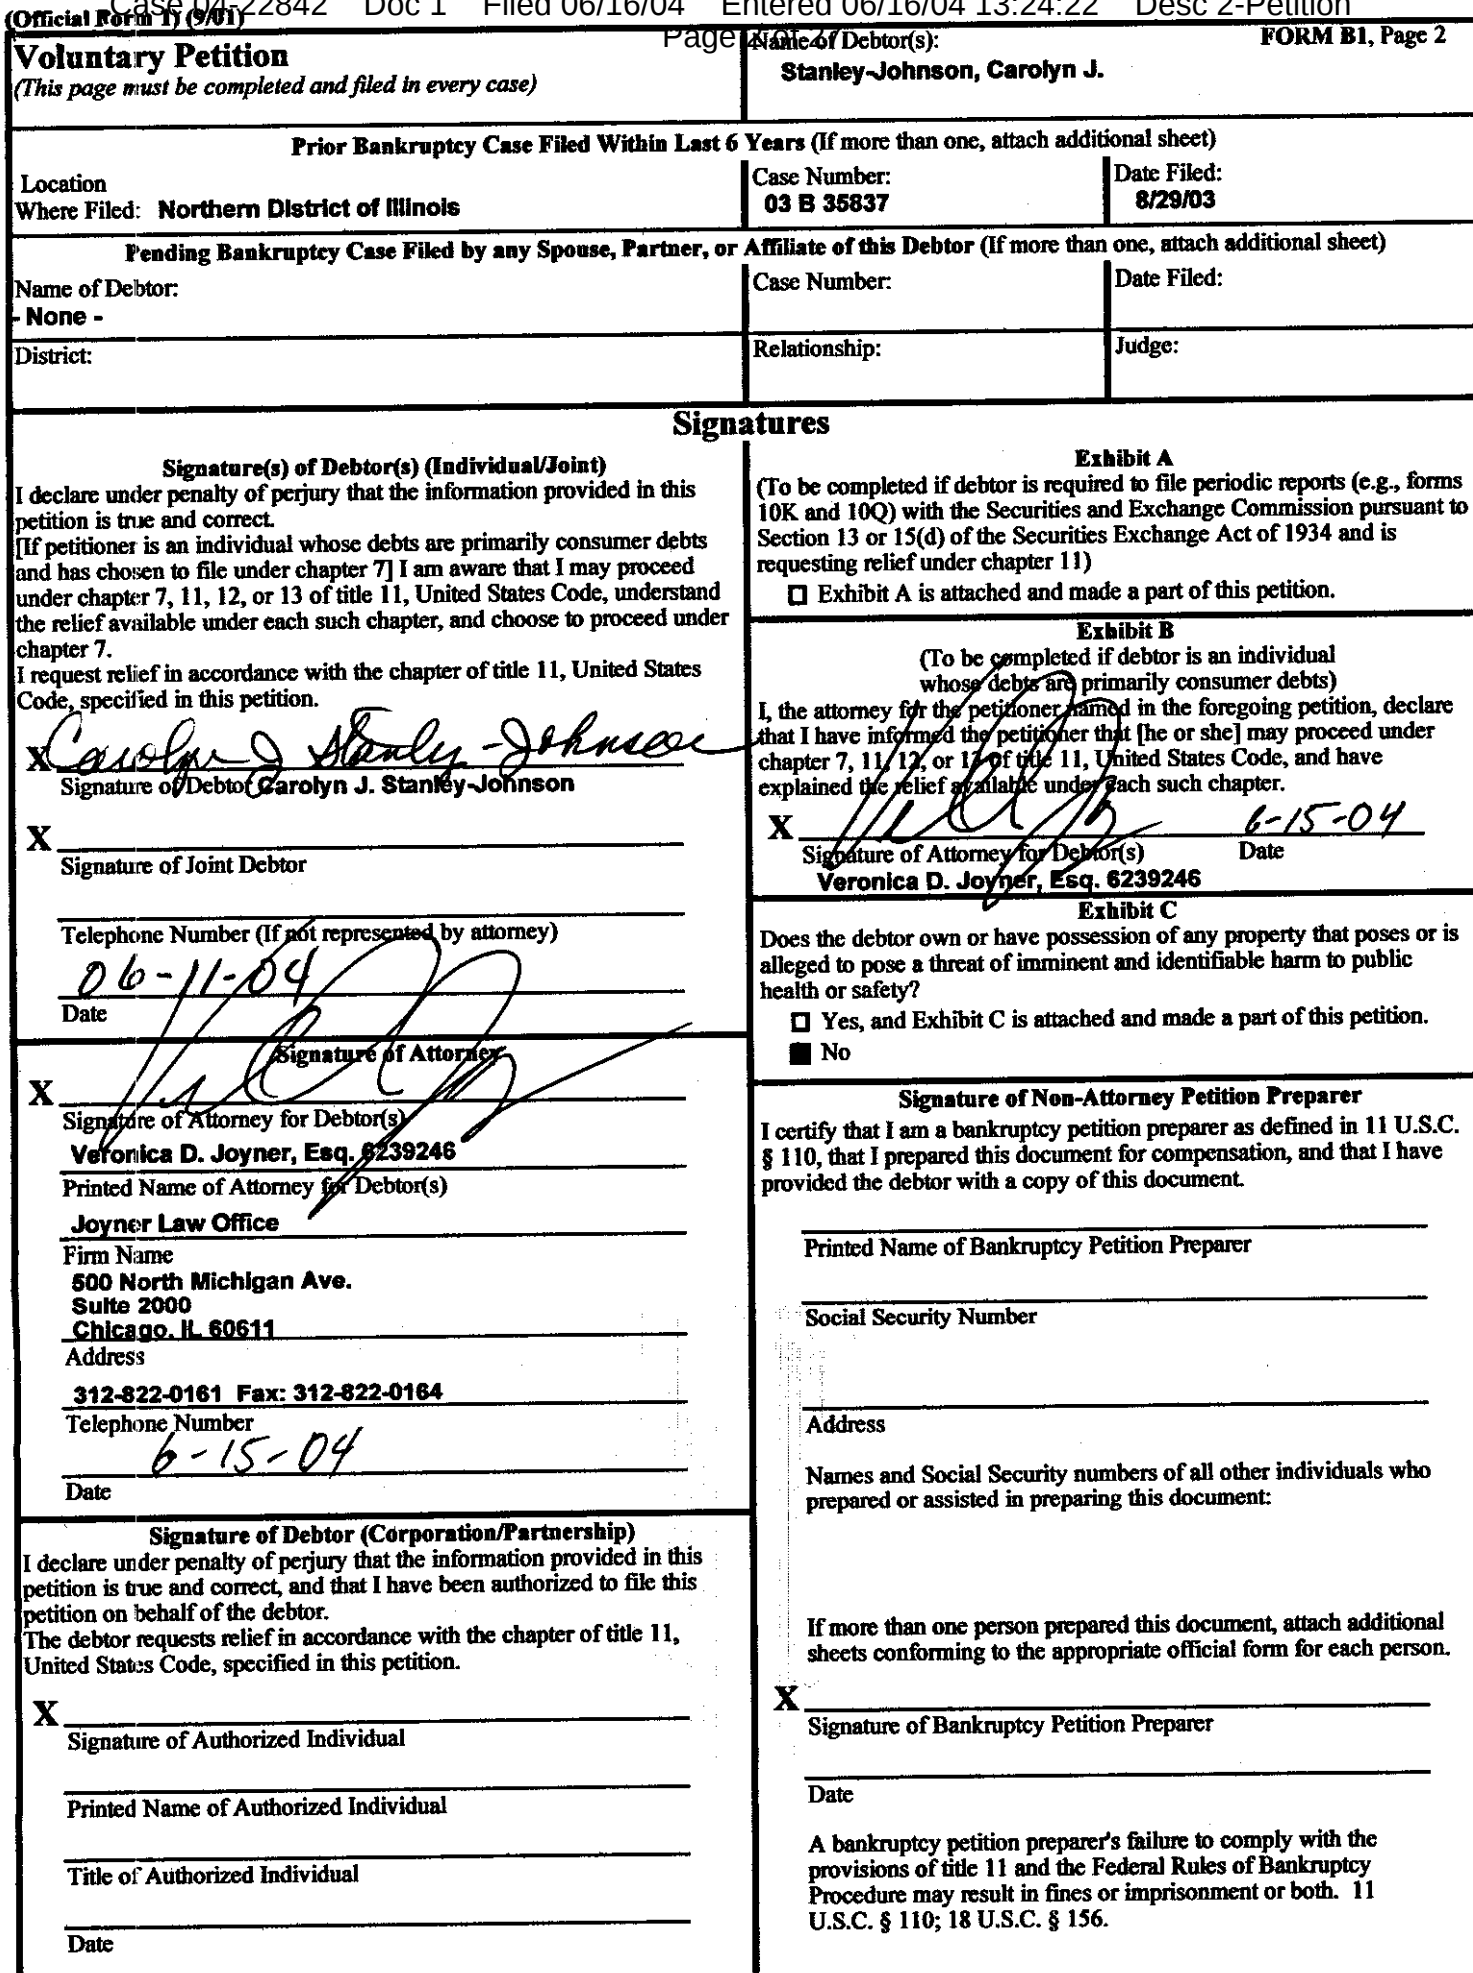 Case 04-22842 Doc 1 Filed 06/16/04 Entered 06/16/04 13:24:22 Desc 2-Petition
Page 2 of 27
(Official Form 1) (9/01)
FORM B1, Page 2
Voluntary Petition
(This page must be completed and filed in every case)
Name of Debtor(s):
Stanley-Johnson, Carolyn J.
Prior Bankruptcy Case Filed Within Last 6 Years (If more than one, attach additional sheet)
Location
Where Filed: Northern District of Illinois
Case Number:
03 B 35837
Date Filed:
8/29/03
Pending Bankruptcy Case Filed by any Spouse, Partner, or Affiliate of this Debtor (If more than one, attach additional sheet)
Name of Debtor:
- None -
Case Number:
Date Filed:
District:
Relationship:
Judge:
Signatures
Signature(s) of Debtor(s) (Individual/Joint)
I declare under penalty of perjury that the information provided in this
petition is true and correct.
[If petitioner is an individual whose debts are primarily consumer debts
and has chosen to file under chapter 7] I am aware that I may proceed
under chapter 7, 11, 12, or 13 of title 11, United States Code, understand
the relief available under each such chapter, and choose to proceed under
chapter 7.
I request relief in accordance with the chapter of title 11, United States
Code, specified in this petition.
X Carolyn J Stanley-Johnson
Signature of Debtor Carolyn J. Stanley-Johnson
X
Signature of Joint Debtor
Telephone Number (If not represented by attorney)
06-11-04
Date
Signature of Attorney
X
Signature of Attorney for Debtor(s)
Veronica D. Joyner, Esq. 6239246
Printed Name of Attorney for Debtor(s)
Joyner Law Office
Firm Name
500 North Michigan Ave.
Suite 2000
Chicago, IL 60611
Address
312-822-0161 Fax: 312-822-0164
Telephone Number
6-15-04
Date
Signature of Debtor (Corporation/Partnership)
I declare under penalty of perjury that the information provided in this
petition is true and correct, and that I have been authorized to file this
petition on behalf of the debtor.
The debtor requests relief in accordance with the chapter of title 11,
United States Code, specified in this petition.
X
Signature of Authorized Individual
Printed Name of Authorized Individual
Title of Authorized Individual
Date
Exhibit A
(To be completed if debtor is required to file periodic reports (e.g., forms
10K and 10Q) with the Securities and Exchange Commission pursuant to
Section 13 or 15(d) of the Securities Exchange Act of 1934 and is
requesting relief under chapter 11)
☐ Exhibit A is attached and made a part of this petition.
Exhibit B
(To be completed if debtor is an individual
whose debts are primarily consumer debts)
I, the attorney for the petitioner named in the foregoing petition, declare
that I have informed the petitioner that [he or she] may proceed under
chapter 7, 11, 12, or 13 of title 11, United States Code, and have
explained the relief available under each such chapter.
X 6-15-04
Signature of Attorney for Debtor(s) Date
Veronica D. Joyner, Esq. 6239246
Exhibit C
Does the debtor own or have possession of any property that poses or is
alleged to pose a threat of imminent and identifiable harm to public
health or safety?
☐ Yes, and Exhibit C is attached and made a part of this petition.
■ No
Signature of Non-Attorney Petition Preparer
I certify that I am a bankruptcy petition preparer as defined in 11 U.S.C.
§ 110, that I prepared this document for compensation, and that I have
provided the debtor with a copy of this document.
Printed Name of Bankruptcy Petition Preparer
Social Security Number
Address
Names and Social Security numbers of all other individuals who
prepared or assisted in preparing this document:
If more than one person prepared this document, attach additional
sheets conforming to the appropriate official form for each person.
X
Signature of Bankruptcy Petition Preparer
Date
A bankruptcy petition preparer's failure to comply with the
provisions of title 11 and the Federal Rules of Bankruptcy
Procedure may result in fines or imprisonment or both. 11
U.S.C. § 110; 18 U.S.C. § 156.